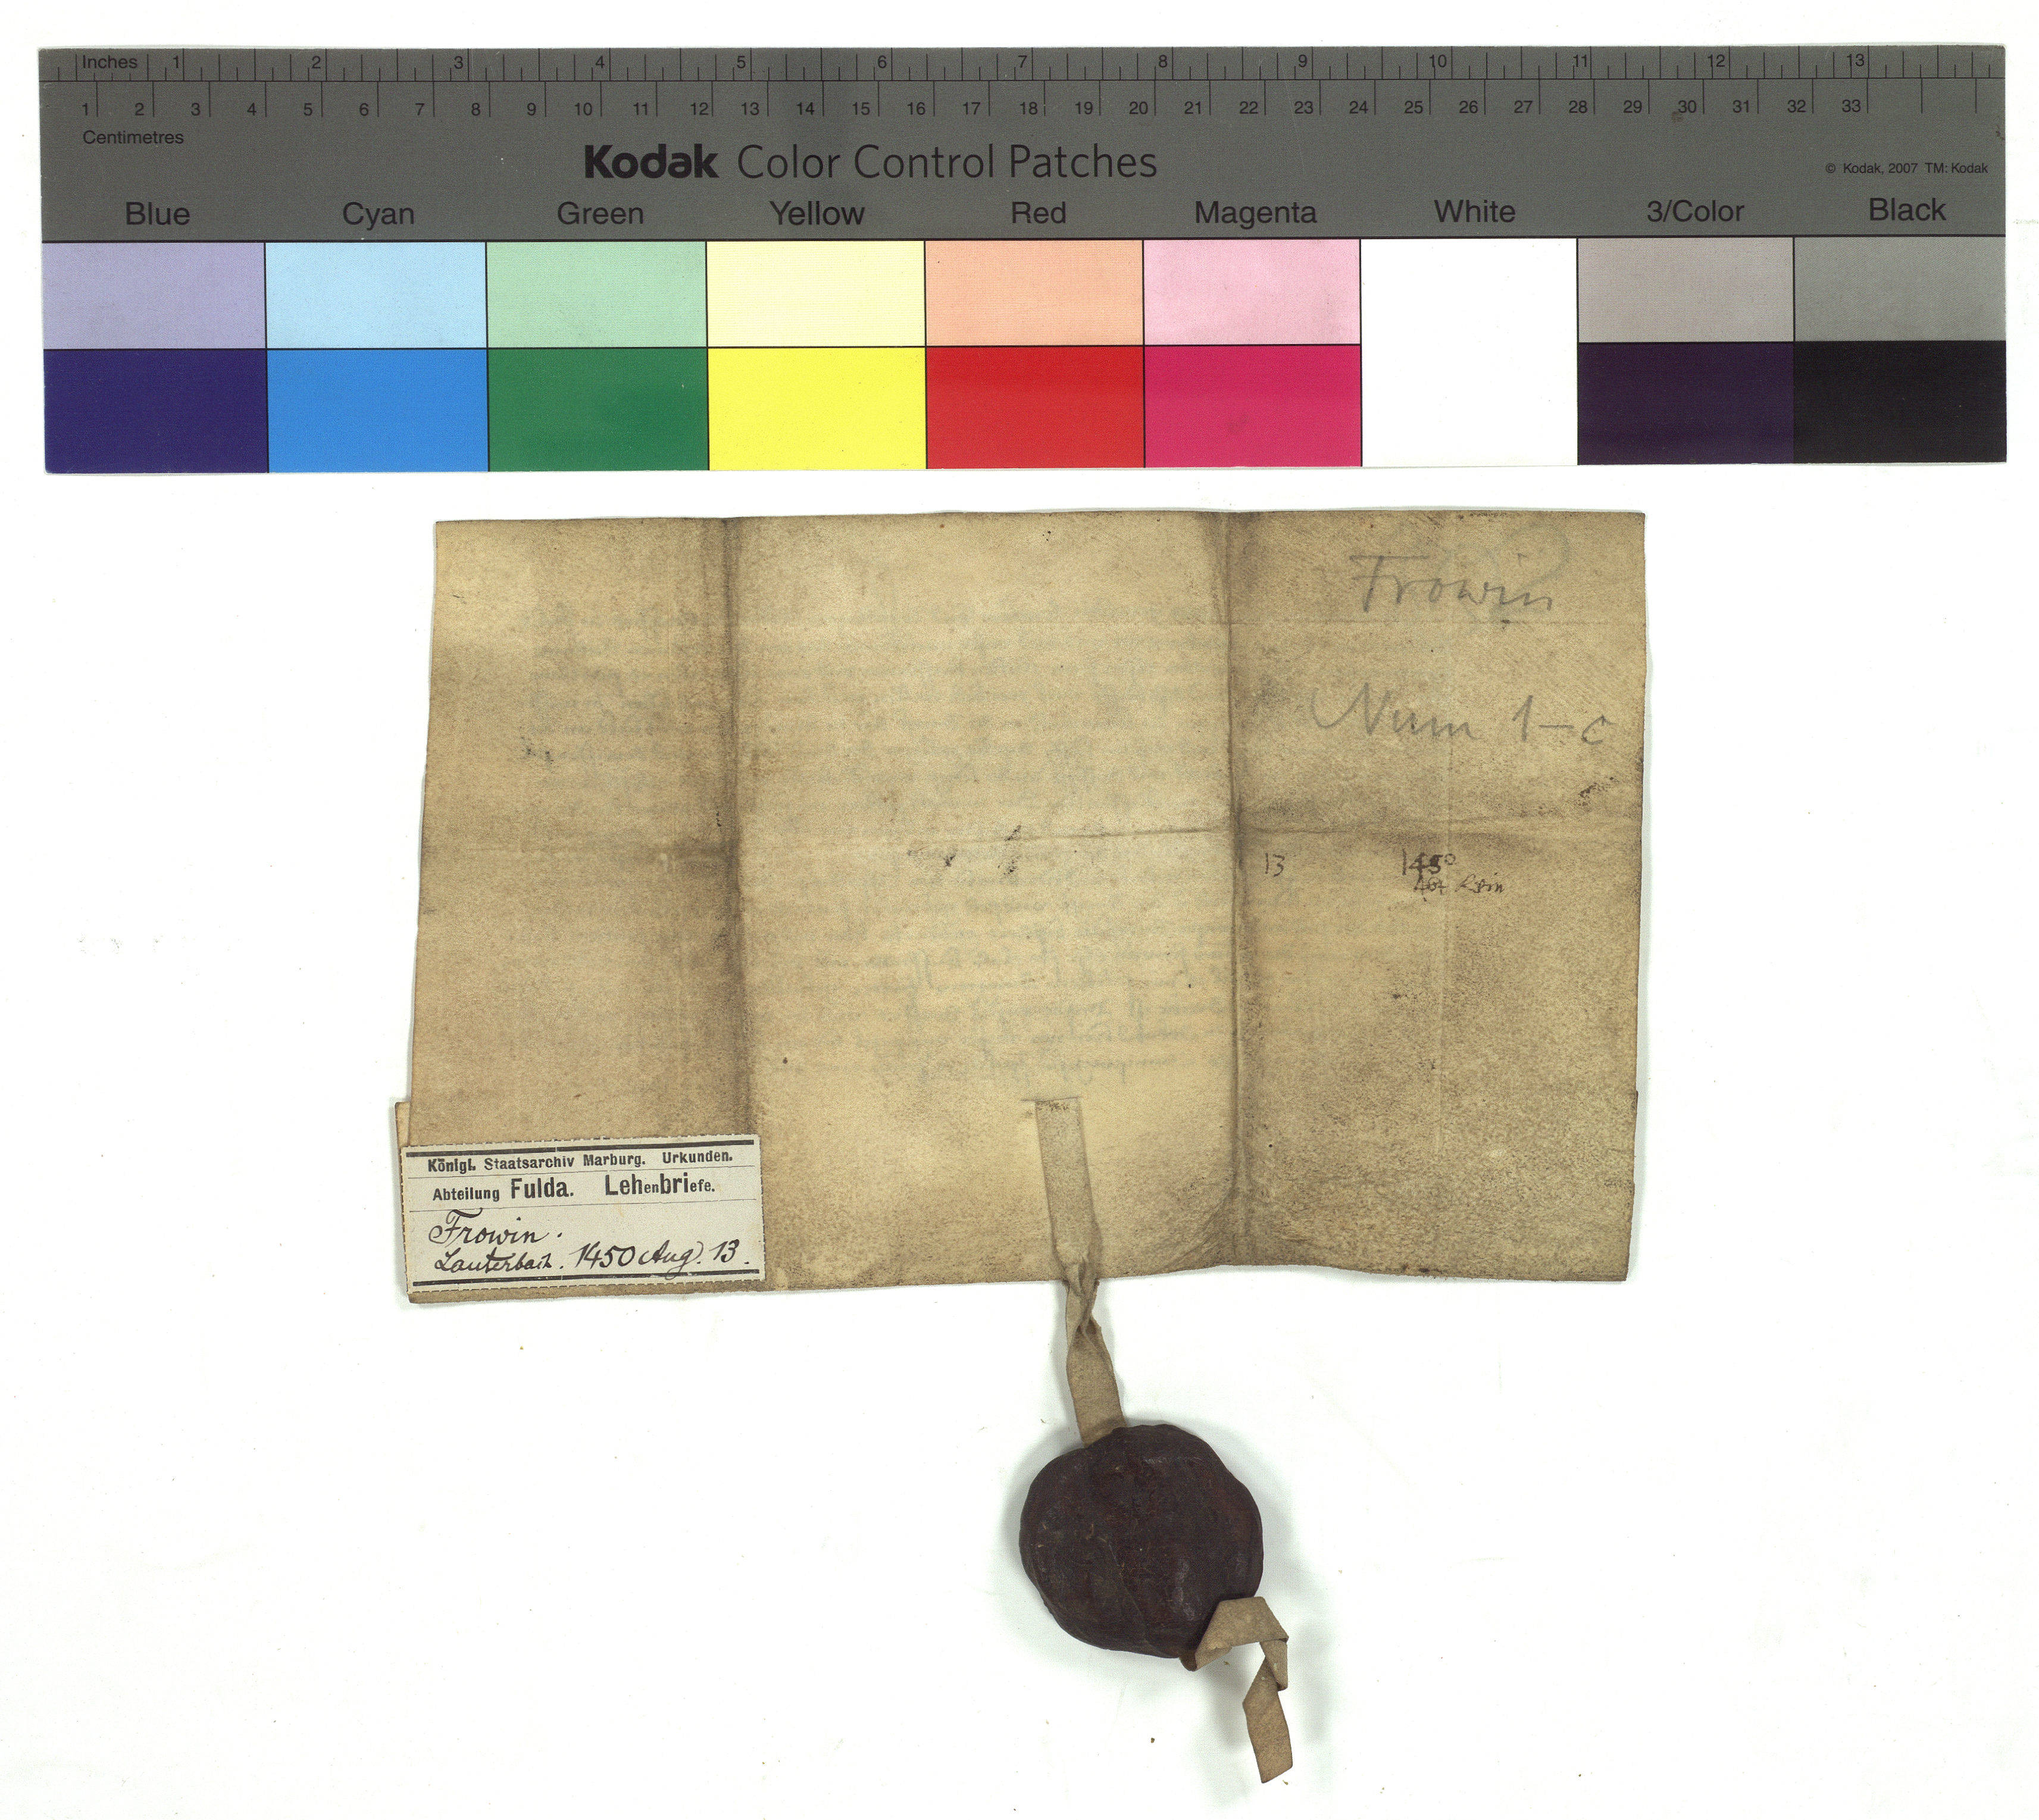 Inches 1 2 3 4 5 6 7 8 9 10 11 12 13
1 2 3 4 5 6 7 8 9 10 11 12 13 14 15 16 17 18 19 20 21 22 23 24 25 26 27 28 29 30 31 32 33
Centimetres
Kodak Color Control Patches
© Kodak, 2007 TM: Kodak
Blue Cyan Green Yellow Red Magenta White 3/Color Black
Frowin
Num 1-c
13 1450
Königl. Staatsarchiv Marburg. Urkunden.
Abteilung Fulda. Lehenbriefe.
Frowin.
Lauterbach. 1450 Aug. 13.